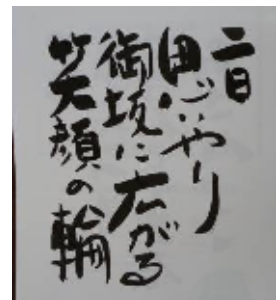 二日
思いやり
御坂に広がる
笑顔の輪